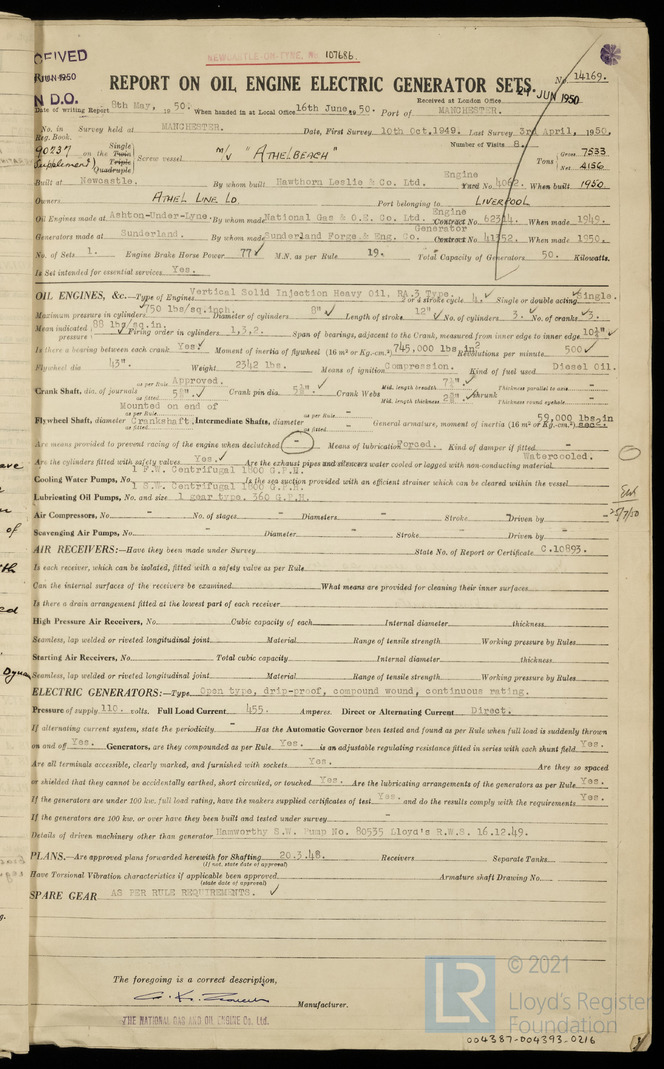 NEWCASTLE-ON-TYNE, No 107686.
JUN 1950
N D.O.
REPORT ON OIL ENGINE ELECTRIC GENERATOR SETS.
No. 14169.
Received at London Office 27 JUN 1950
Date of writing Report 8th May, 1950. When handed in at Local Office 16th June, 1950. Port of MANCHESTER.
No. in Reg. Book. Survey held at MANCHESTER. Date, First Survey 10th Oct, 1949. Last Survey 3rd April, 1950.
Number of Visits 8.
90237 on the Single Twin Triple Quadruple Screw vessel M/V "ATHELBEACH" Tons Gross 7533 Net 4156
Supplement)
Built at Newcastle. By whom built Hawthorn Leslie & Co. Ltd. Engine Yard No. 4062. When built 1950
Owners ATHEL LINE LD. Port belonging to LIVERPOOL
Oil Engines made at Ashton-Under-Lyne. By whom made National Gas & O.E. Co. Ltd. Engine Contract No. 62314. When made 1949.
Generators made at Sunderland. By whom made Sunderland Forge & Eng. Co. Generator Contract No. 41352. When made 1950.
No. of Sets 1. Engine Brake Horse Power 77 M.N. as per Rule 19. Total Capacity of Generators 50. Kilowatts.
Is Set intended for essential services Yes.
OIL ENGINES, &c.—Type of Engines Vertical Solid Injection Heavy Oil. RA.3 Type. 2 or 4 stroke cycle 4. Single or double acting Single.
Maximum pressure in cylinders 750 lbs/sq.inch. Diameter of cylinders 8" Length of stroke 12" No. of cylinders 3. No. of cranks 3.
Mean indicated pressure 88 lbs/sq.in. Firing order in cylinders 1,3,2. Span of bearings, adjacent to the Crank, measured from inner edge to inner edge 10½"
Is there a bearing between each crank Yes. Moment of inertia of flywheel (16 m² or Kg.-cm.²) 745,000 lbs.in² Revolutions per minute 500
Flywheel dia 43". Weight 2342 lbs. Means of ignition Compression. Kind of fuel used Diesel Oil.
Crank Shaft, dia. of journals as per Rule Approved. as fitted Crank pin dia. Crank Webs Mid. length breadth Mid. length thickness shrunk Thickness parallel to axis - Thickness round eyehole -
Flywheel Shaft, diameter as per Rule as fitted Mounted on end of Crankshaft. Intermediate Shafts, diameter as per Rule - as fitted - General armature, moment of inertia (16 m² or Kg.-cm.²) 59,000 lbs in secs.
Are means provided to prevent racing of the engine when declutched - Means of lubrication Forced. Kind of damper if fitted -
Are the cylinders fitted with safety valves Yes. Are the exhaust pipes and silencers water cooled or lagged with non-conducting material Watercooled.
Cooling Water Pumps, No. 1 F.W. Centrifugal 1800 G.P.H. 1 S.W. Centrifugal 1800 G.P.H. Is the sea suction provided with an efficient strainer which can be cleared within the vessel
Lubricating Oil Pumps, No. and size 1 gear type. 360 G.P.H.
25/7/50
Air Compressors, No. - No. of stages - Diameters - Stroke - Driven by -
Scavenging Air Pumps, No. - Diameter - Stroke - Driven by -
AIR RECEIVERS:—Have they been made under Survey State No. of Report or Certificate C.10893.
Is each receiver, which can be isolated, fitted with a safety valve as per Rule
Can the internal surfaces of the receivers be examined What means are provided for cleaning their inner surfaces
Is there a drain arrangement fitted at the lowest part of each receiver
High Pressure Air Receivers, No. Cubic capacity of each Internal diameter thickness
Seamless, lap welded or riveted longitudinal joint Material Range of tensile strength Working pressure by Rules
Starting Air Receivers, No. Total cubic capacity Internal diameter thickness
Seamless, lap welded or riveted longitudinal joint Material Range of tensile strength Working pressure by Rules
ELECTRIC GENERATORS:—Type Open type, drip-proof, compound wound, continuous rating.
Pressure of supply 110. volts. Full Load Current 455. Amperes. Direct or Alternating Current Direct.
If alternating current system, state the periodicity - Has the Automatic Governor been tested and found as per Rule when full load is suddenly thrown
on and off Yes. Generators, are they compounded as per Rule Yes. is an adjustable regulating resistance fitted in series with each shunt field Yes.
Are all terminals accessible, clearly marked, and furnished with sockets Yes. Are they so spaced
or shielded that they cannot be accidentally earthed, short circuited, or touched Yes. Are the lubricating arrangements of the generators as per Rule Yes.
If the generators are under 100 kw. full load rating, have the makers supplied certificates of test Yes. and do the results comply with the requirements Yes.
If the generators are 100 kw. or over have they been built and tested under survey -
Details of driven machinery other than generator Hamworthy S.W. Pump No. 80535 Lloyd's R.W.S. 16.12.49.
PLANS.—Are approved plans forwarded herewith for Shafting 20.3.48. Receivers Separate Tanks
(If not, state date of approval)
Have Torsional Vibration characteristics if applicable been approved Armature shaft Drawing No.
(state date of approval)
SPARE GEAR AS PER RULE REQUIREMENTS.
The foregoing is a correct description,
Manufacturer.
THE NATIONAL GAS AND OIL ENGINE Co. Ltd.
LR
© 2021
Lloyd's Register
Foundation
004387-004393-0216